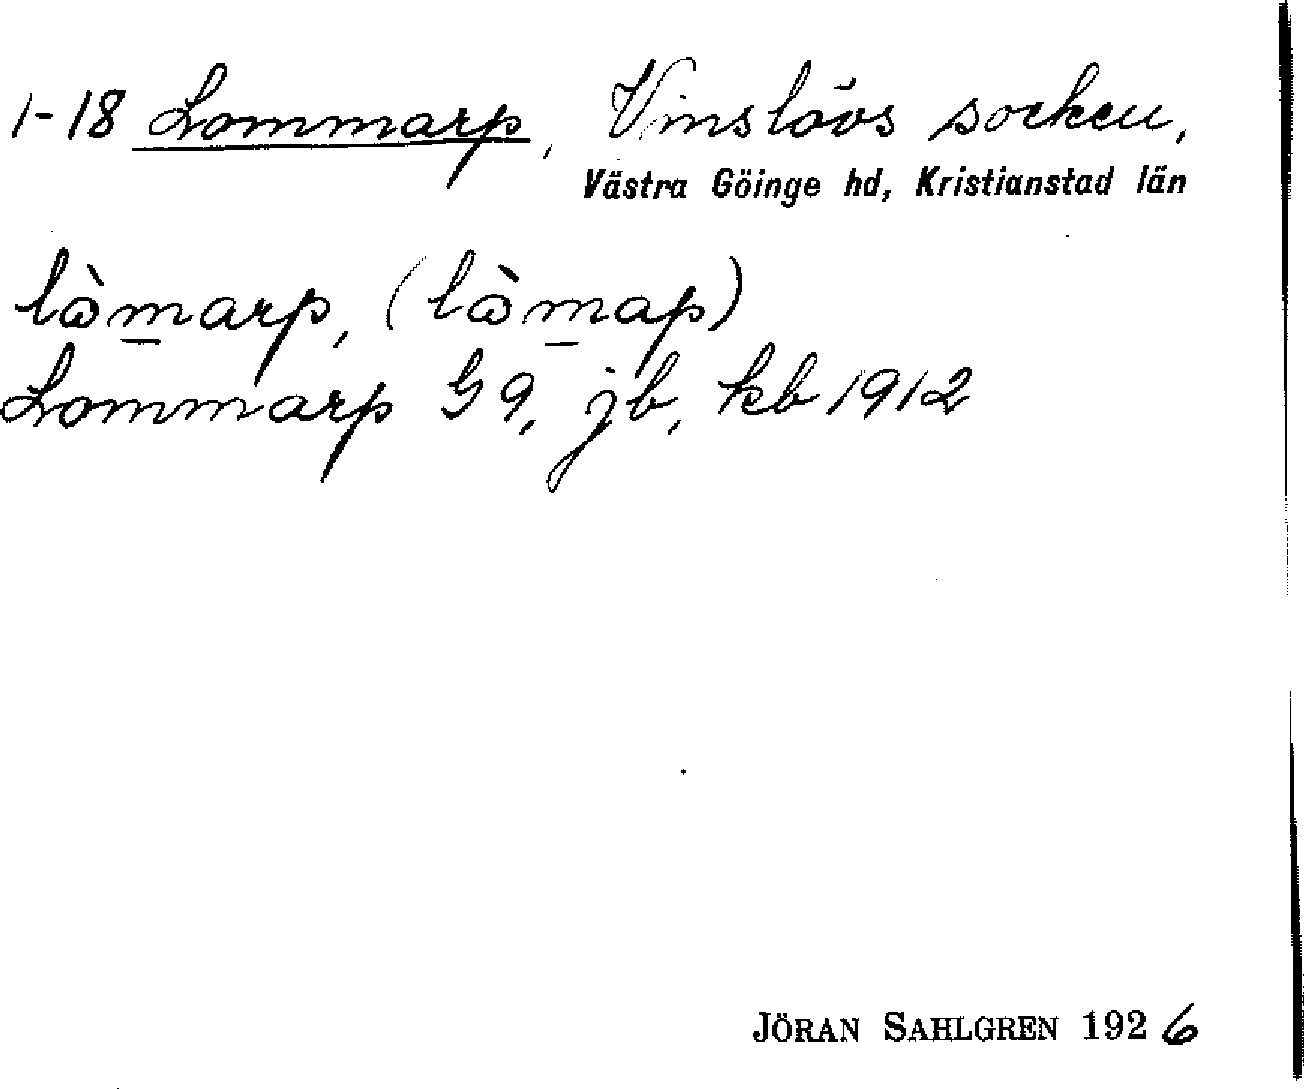 1-18 Lommarp, Vinslövs socken,
Västra Göinge hd, Kristianstad län
lòmarp, (lòmap)
Lommarp G9, jb, kb 1912
JÖRAN SAHLGREN 1926